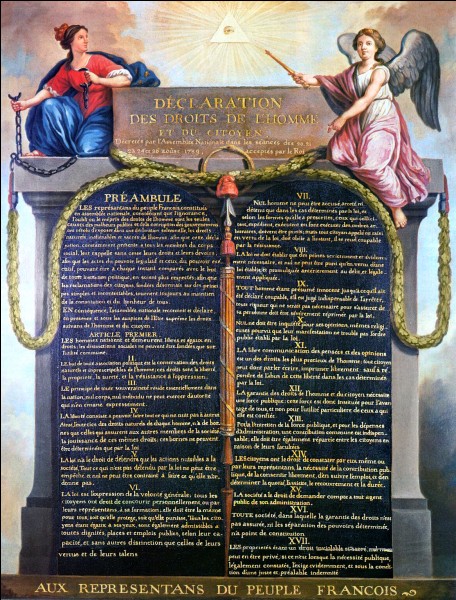 DÉCLARATION
DES DROITS DE L'HOMME
ET DU CITOYEN,
Décrétés par l'Assemblée Nationale dans les séances des 20, 21
23, 24 et 26 août 1789, acceptés par le Roi
PRÉAMBULE
LES représentans du peuple Francois, constitués
en assemblée nationale, considérant que l'ignorance,
l'oubli ou le mépris des droits de l'homme sont les seules
causes des malheurs publics et de la corruption des gouvernemens
ont résolu d'exposer dans une déclaration solemnelle, les droits
naturels, inaliénables et sacrés de l'homme; afin que cette décla-
ration, constamment présente a tous les membres du corps
social, leur rappelle sans cesse leurs droits et leurs devoirs;
afin que les actes du pouvoir législatif et ceux du pouvoir exé-
cutif, pouvant être a chaque instant comparés avec le but
de toute institution politique, en soient plus respectés; afin que
les reclamations des citoyens, fondées désormais sur des princi-
pes simples et incontestables, tournent toujours au maintien
de la constitution et du bonheur de tous.
EN conséquence, l'assemblée nationale reconnoit et déclare
en présence et sous les auspices de l'Etre suprême les droits
suivans de l'homme et du citoyen.
ARTICLE PREMIER.
LES hommes naissent et demeurent libres et égaux en
droits; les distinctions sociales ne peuvent être fondées que sur
l'utilité commune.
II.
LE but de toute association politique est la conservation des droits
naturels et imprescriptibles de l'homme; ces droits sont la liberté,
la propriété, la sureté, et la résistance à l'oppression.
III.
LE principe de toute souveraineté réside essentiellement dans
la nation, nul corps, nul individu ne peut exercer d'autorité
qui n'en émane expressement.
IV.
LA liberté consiste a pouvoir faire tout ce qui ne nuit pas à autrui
Ainsi, l'exercice des droits naturels de chaque homme, n'a de bor-
nes que celles qui assurent aux autres membres de la société
la jouissance de ces mêmes droits; ces bornes ne peuvent
être déterminées que par la loi
V.
LA loi n'a le droit de défendre que les actions nuisibles a la
société. Tout ce qui n'est pas défendu par la loi ne peut être
empêché, et nul ne peut être contraint à faire ce qu'elle n'or-
donne pas.
VI.
LA loi est l'expression de la volonté générale; tous les
citoyens ont droit de concourir personnellement, ou par
leurs représentans, à sa formation; elle doit être la même
pour tous, soit qu'elle protege, soit qu'elle punisse. Tous les cito-
yens étant égaux à ses yeux, sont également admissibles à
toutes dignités, places et emplois publics, selon leur ca-
pacité, et sans autres distinction que celles de leurs
vertus et de leurs talens
VII.
NUL homme ne peut être accusé, arreté, ni
détenu que dans les cas déterminés par la loi, et
selon les formes qu'elle a prescrites, ceux qui sollici-
tent, expédient, exécutent ou font exécuter des ordres ar-
bitraires, doivent être punis; mais tout citoyen appelé ou saisi
en vertu de la loi, doit obéir a l'instant, il se rend coupable
par la résistance.
VIII.
LA loi ne doit établir que des peines strictement et évidem-
ment nécessaires, et nul ne peut être puni qu'en vertu d'une
loi établie et promulguée antérieurement au délit, et légale-
ment appliquée.
IX.
TOUT homme étant présumé innocent jusqu'a ce qu'il ait
été déclaré coupable, s'il est jugé indispensable de l'arrêter,
toute rigueur qui ne serait pas nécessaire pour s'assurer de
sa personne doit être sévèrement réprimée par la loi.
X.
NUL ne doit être inquiété pour ses opinions, mêmes religi-
euses pourvu que leur manifestation ne trouble pas l'ordre
public établi par la loi.
XI.
LA libre communication des pensées et des opinions
est un des droits les plus precieux de l'homme; tout citoyen
peut donc parler, écrire, imprimer librement: sauf a ré-
pondre de l'abus de cette liberté dans les cas déterminés
par la loi.
XII.
LA garantie des droits de l'homme et du citoyen nécessite
une force publique; cette force est donc instituée pour l'avan-
tage de tous, et non pour l'utilité particuliere de ceux a qui
elle est confiée.
XIII.
POUR l'entretien de la force publique, et pour les dépenses
d'administration, une contribution commune est indispen-
sable; elle doit être également répartie entre les citoyens en
raison de leurs facultées.
XIV.
LES citoyens ont le droit de constater par eux même ou
par leurs représentans, la nécessité de la contribution pub-
lique, de la consentir librement, d'en suivre l'emploi, et d'en
déterminer la quotité, l'assiette, le recouvrement et la durée.
XV.
LA société a le droit de demander compte a tout agent
public de son administration.
XVI.
TOUTE société, dans laquelle la garantie des droits n'est
pas assurée, ni la séparation des pouvoirs déterminée,
n'a point de constitution.
XVII.
LES propriétés étant un droit inviolable et sacré, nul ne
peut en être privé, si ce n'est lorsque la nécessité publique,
légalement constatée, l'exige évidemment, et sous la condi-
tion d'une juste et préalable indemnité
AUX REPRESENTANS DU PEUPLE FRANCOIS